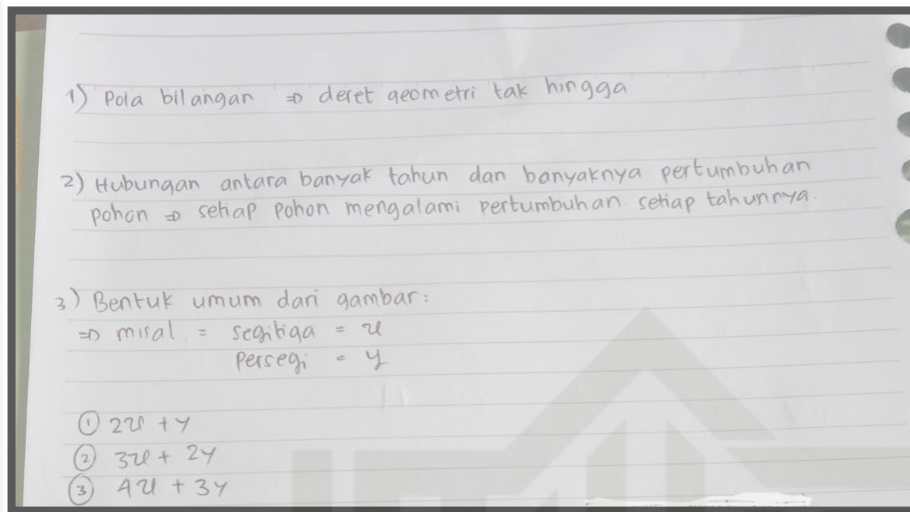 1) Pola bilangan ⇒ deret geometri tak hingga
2) Hubungan antara banyak tahun dan banyaknya pertumbuhan
pohon ⇒ setiap pohon mengalami pertumbuhan setiap tahunnya.
3) Bentuk umum dari gambar:
⇒ misal = segitiga = x
persegi = y
① 2x + y
② 3x + 2y
③ 4x + 3y